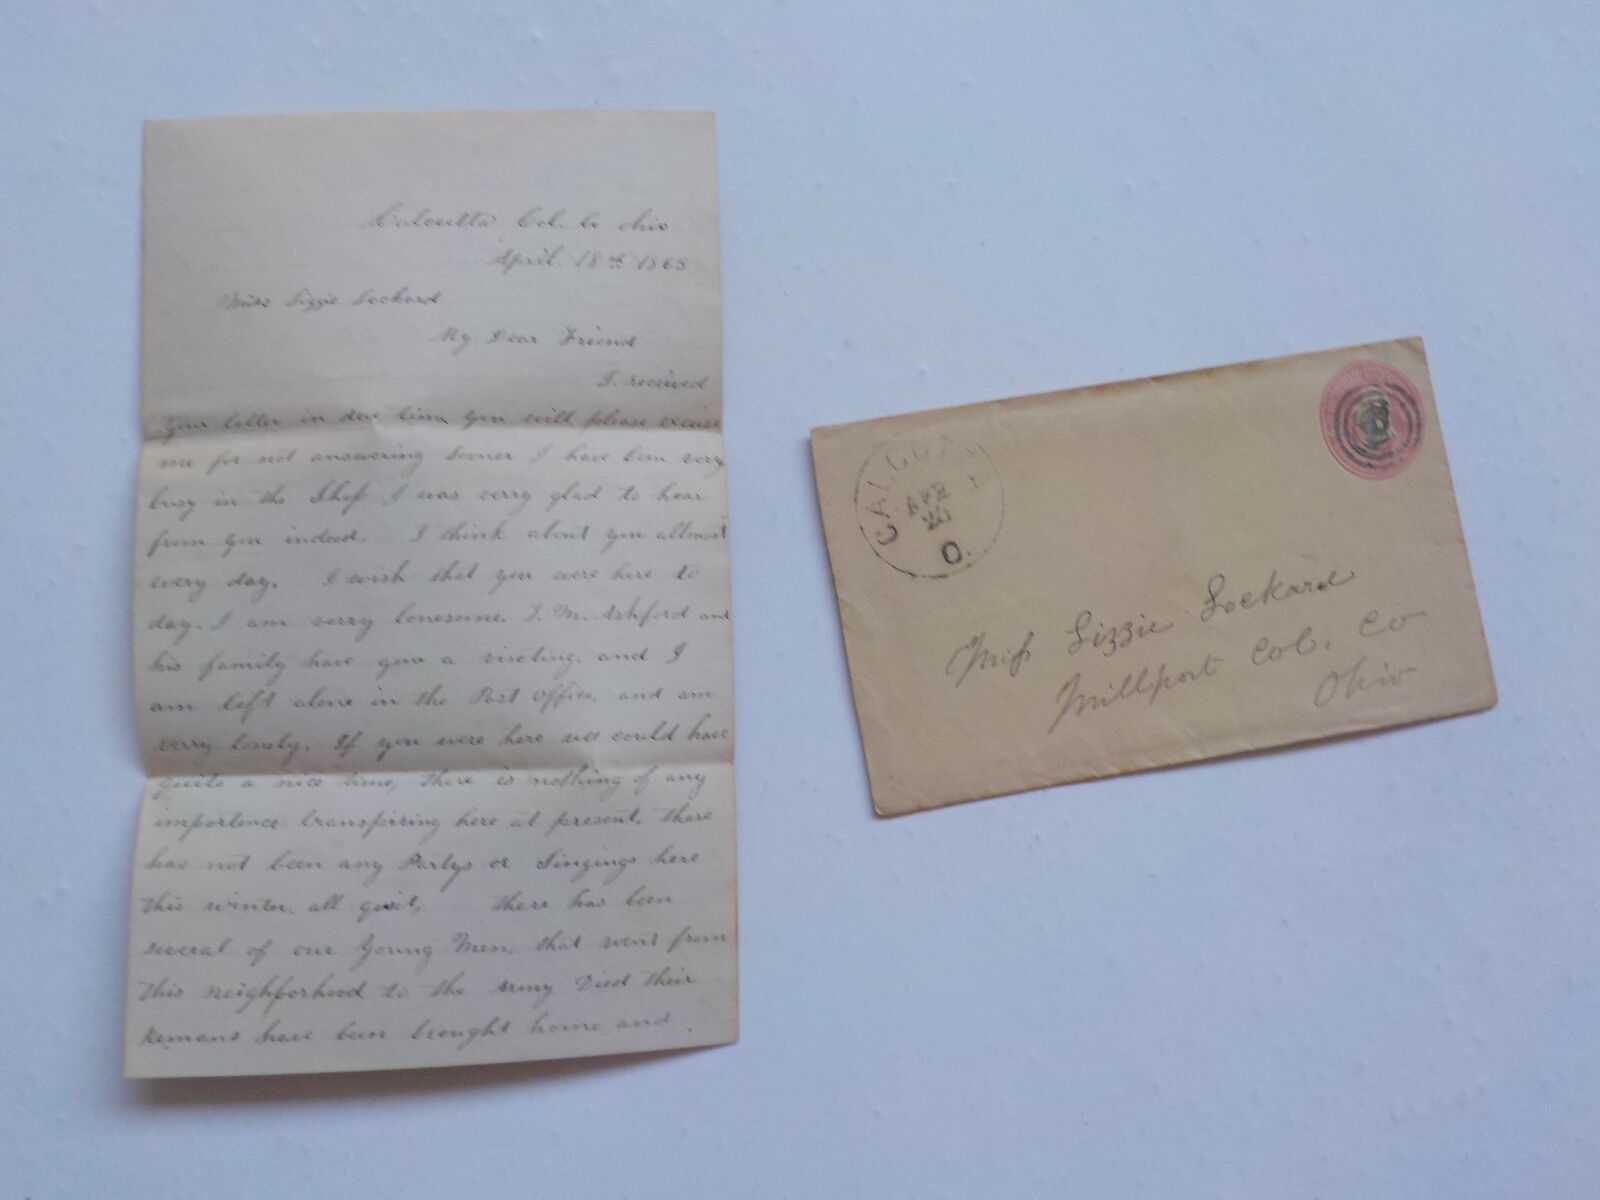 Calcutta Col. Co Ohio
April. 18th 1865
Miss Lizzie Lockard
My Dear Friend
I. received
your letter in due time you will please excuse
me for not answering sooner I have been very
busy in the Shop I was verry glad to hear
from you indeed. I think about you allmost
every day. I wish that you were here to
day. I am verry lonesome. T. M. Ashford and
his family have gon a viseting. and I
am left alone in the Post office. and am
verry lonely. If you were here we could have
quite a nice time, there is nothing of any
importence transpiring here at present. there
has not been any Partys or Singings here
this winter. all quiet, there has been
several of our Young Men. that went from
this neighborhood to the army Died their
Remans have been brought home and
CALCUTTA
APR
20
O.
Miss Lizzie Lockard
Millport Col. Co
Ohio